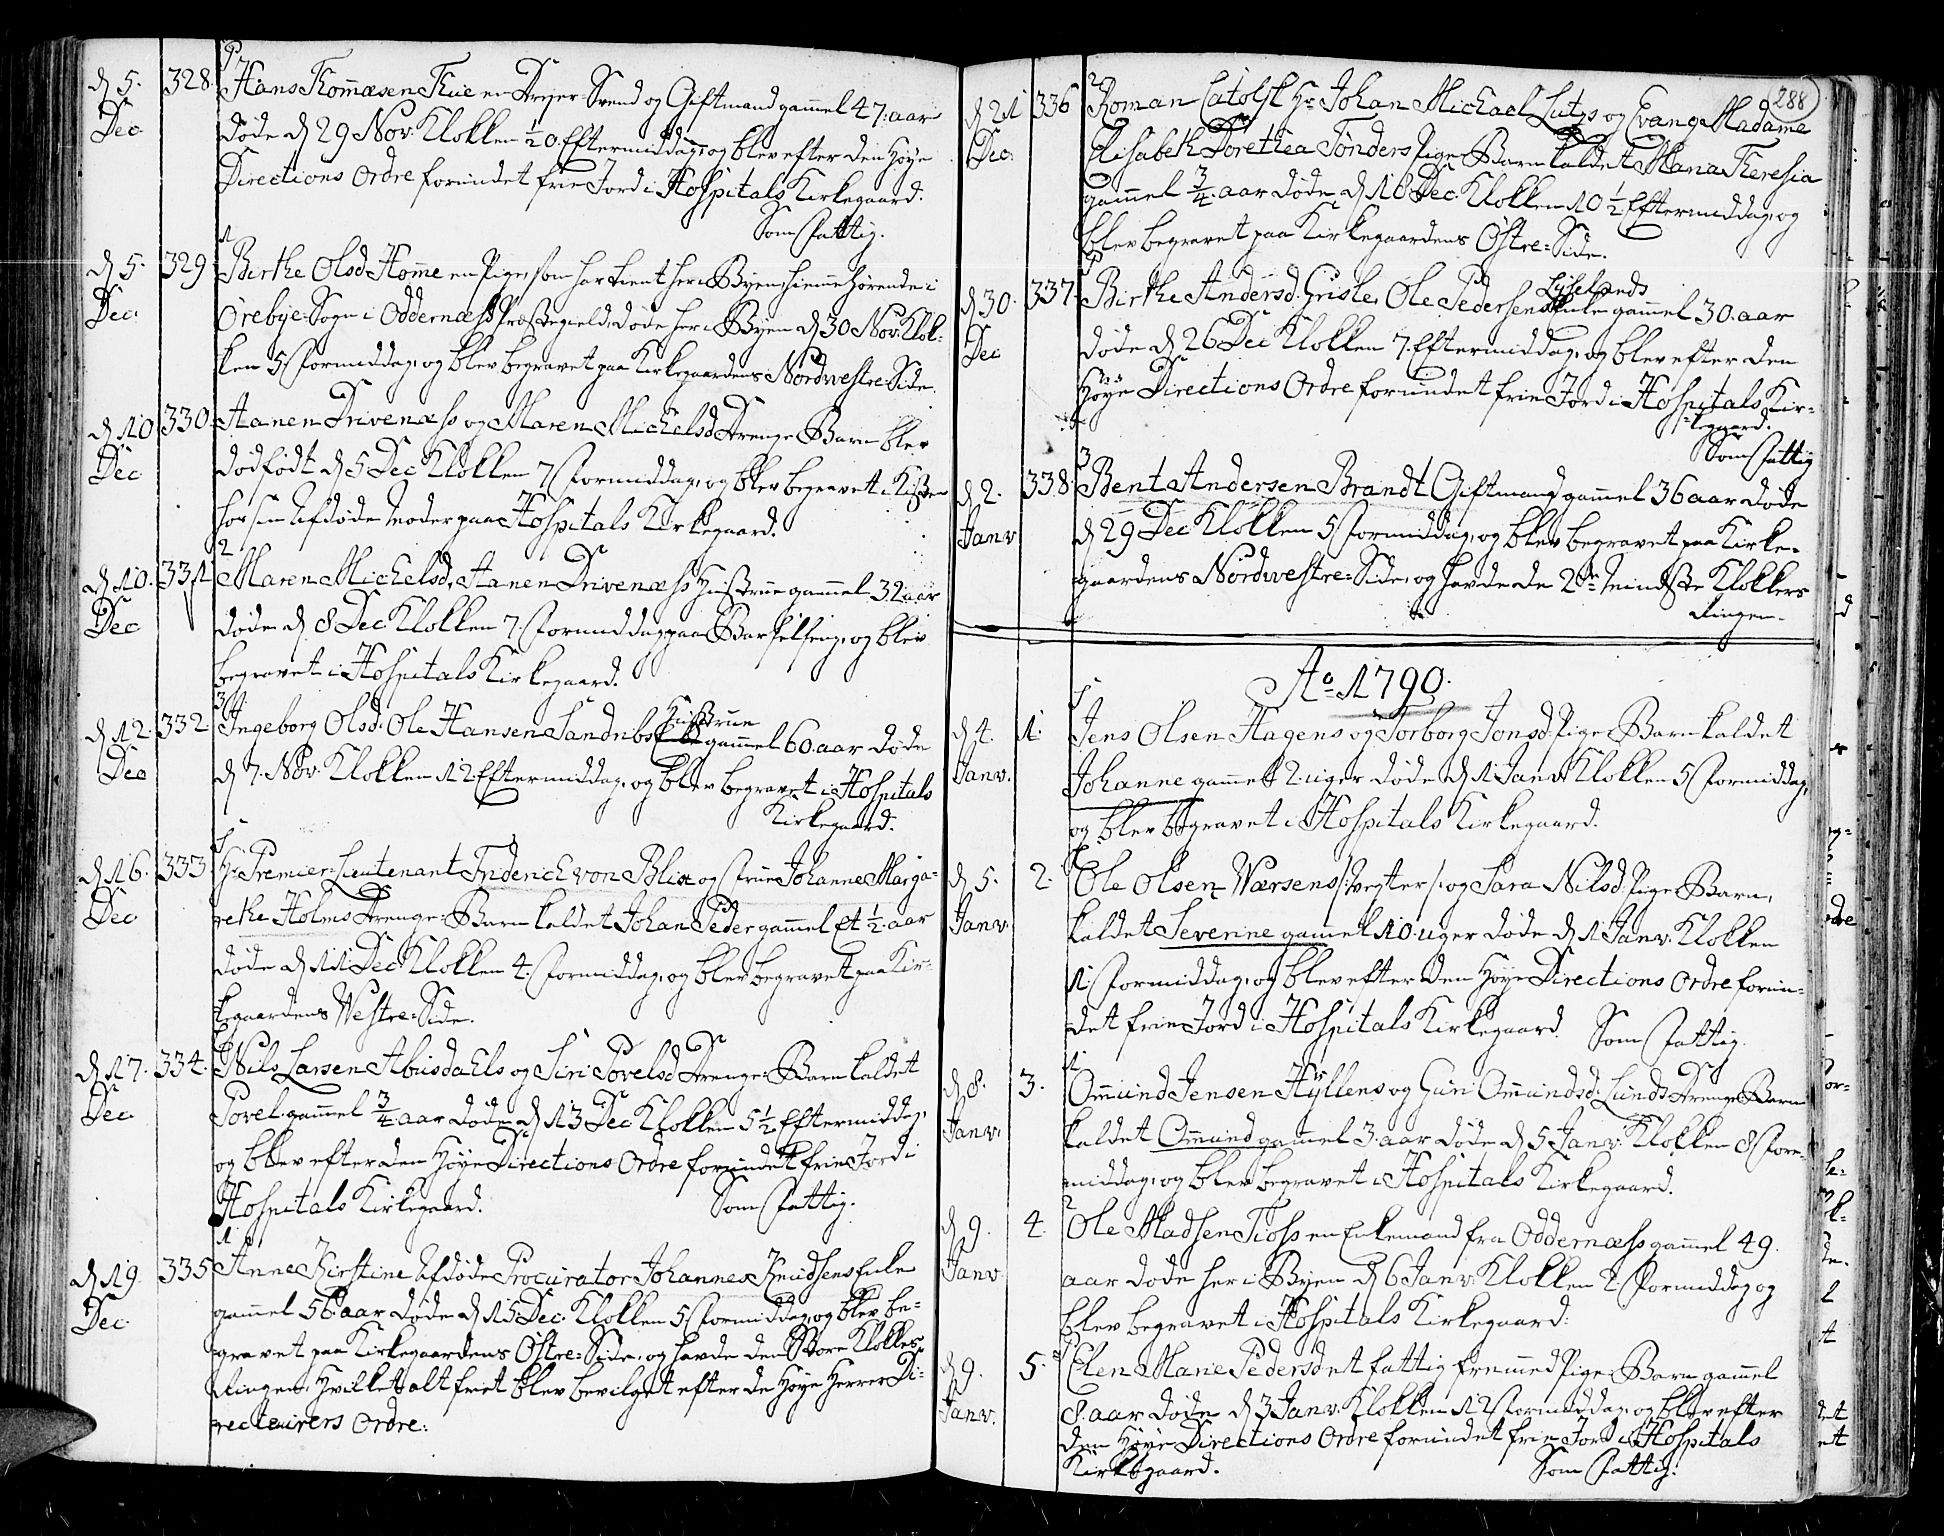 d. 5. Dec. 328.
Hans Thommæsen Thue en Dreyer-Svend og Giftmand gammel 47: aar
døde d 29 Nov. Klokken ½0. Eftermiddag, og blev efter den Høye
Directions Ordre forundet frie Jord i Hospitals Kirkegaard.
Som fattig.
d. 5. Dec. 329
1
Birthe Olsd Homme en Pige, som har tient her i Byen, hiemme hørende i
Orebye-Sogn i Oddernæss Præstegield, døde her i Byen d 30 Nov. Klok-
ken 5 Formiddag, og blev begravet paa Kirkegaardens Nordwestre-Side.
d. 10 Dec 330
Aanen Drivenæss og Maren Michelsd Drenge-Barn blev
dødfødt d 5 Dec Klokken 7 Formiddag, og blev begravet i Kisten
hos sin Afdøde Moder paa Hospitals Kirkegaard.
d. 10. Dec 331
2
Maren Michelsd, Aanen Drivenæss Hustrue gammel 32 aar
døde d 8 Dec Klokken 7. Formiddag paa Barselseng, og blev
begravet i Hospitals Kirkegaard.
d. 12. Dec 332.
3
Hustrue
Ingeborg Olsd. Ole Hansen Sandnbs gammel 60. aar døde
d 7. Nov. Klokken 12 Eftermiddag, og blev begravet i Hospitals
Kirkegaard.
d. 16. Dec 333
Hr Premier-Lieutenant Friderich von Blix og Frue Johanne Marga-
rethe Holms Drenge-Barn kaldet Johan Peder gammel Et ½. aar
døde d 11 Dec Klokken 4. Formiddag, og blev begravet paa Kir-
kegaardens Westre-Side.
d. 17. Dec. 334.
Nils Larsen Abusdahls og Siri Tovelsd Drenge-Barn kaldet
Tovel. gammel ¾ aar døde d 13 Dec Klokken 5½ Eftermiddag,
og blev efter den Høye Directions Ordre forundet frie Jord i
Hospitals Kirkegaard. Som fattig.
d. 19. Dec. 335
1
Anne Kirstine Afdøde Procurator Johannes Knudsens Enke
gammel 56 aar døde d 15 Dec. Klokken 5 Formiddag, og blev be-
gravet paa Kirkegaardens Østre-Side, og havde den Store Klokkes
Ringen. Hvilket alt friet blev bevilget efter de Høye Herrer Di-
recteurers Ordre:
288
d. 21 Dec. 336
2
Roman Catolsk Hr Johan Michael Lutzs og Evang. Madame
Elisabeth Dorethea Tønders Pige-Barn kaldet Maria Theresia
gammel ¾. aar døde d 18 Dec. Klokken 10½ Eftermiddag, og
blev begravet paa Kirkegaardens Østre-Side.
d. 30. Dec 337.
Lyselands
Birthe Andersd. Grisle, Ole Pedersens Enke gammel 30. aar
døde d 26 Dec Klokken 7. Eftermiddag, og blev efter den
Høye Directions Ordre forundet frie Jord i Hospitals Kir-
kegaard.
Som fattig
d. 2. Janv 338.
3
Bent Andersen Brandt Giftmand gammel 36 aar døde
d 29 Dec Klokken 5 Formiddag, og blev begravet paa Kirke-
gaardens Nordwestre-Side, og havde de 2de Mindste Klokkers
Ringen.
Ao 1790.
d. 4. Janv. 1.
Jens Olsen Hagens og Torborg Jonsd. Pige-Barn kaldet
Johanne gammel 2. uger døde d 1 Janv. Klokken 5 Formiddag,
og blev begravet i Hospitals Kirkegaard.
d. 5. Janv. 2.
Ole Olsen Wærsens /: Vegter :/ og Sara Nilsd. Pige-Barn,
kaldet Severine gamel 10. uger døde d 1 Janv. Klokken
1 Formiddag, og blev efter den Høye Directions Ordre forun-
det frie Jord i Hospitals Kirkegaard. Som fattig.
d. 8. Janv. 3.
1
Ommund Jensen Hyllens og Guri Ommundsd. Lunds Drenge-Barn
kaldet Ommund gammel 3. aar døde d 5 Janv. Klokken 8 For-
middag, og blev begravet i Hospitals Kirkegaard.
d. 9. Janv 4.
2
Ole Madsen Tioss en Enkemand fra Oddernæss gammel 49.
aar døde her i Byen d 6 Janv. Klokken 2 Formiddag og
blev begravet i Hospitals Kirkegaard:
d. 9. Janv. 5.
Elen Marie Pedersd et fattig fremmed Pige-Barn gammel
8. aar døde d 3 Janv. Klokken 12 Formiddag, og blev efter
den Høye Directions Ordre forundet frie Jord i Hospitals
Kirkegaard. Som fattig.